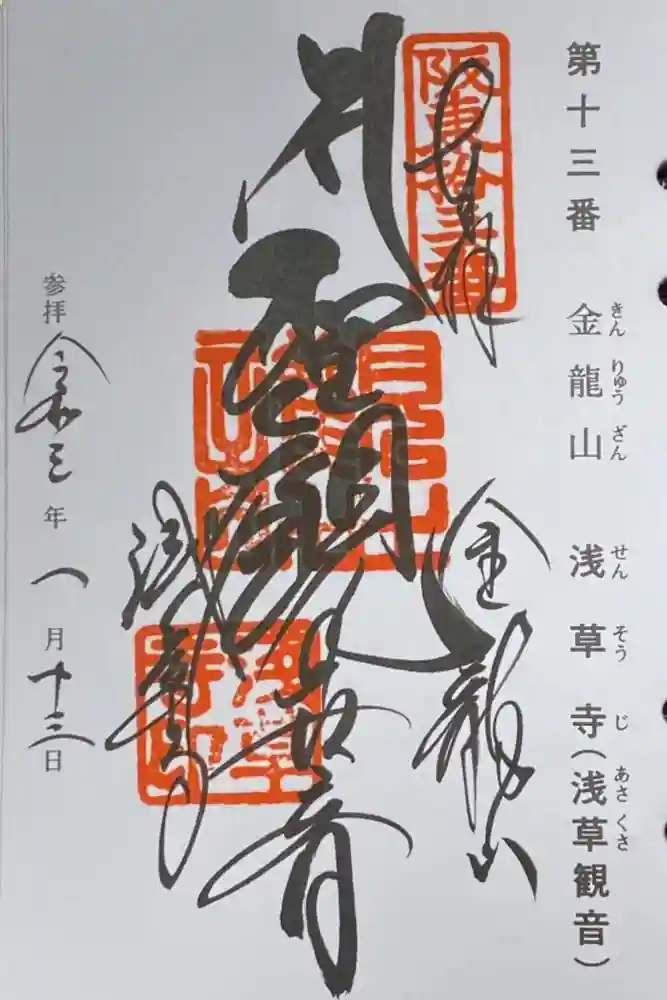 第十三番 金龍山 浅草寺(浅草観音)
きん りゅう ざん せん そう じ あさ くさ
阪東拾三番
奉拝
金龍山
聖観世音
浅草寺
浅草寺印
参拝 令和三年一月十三日